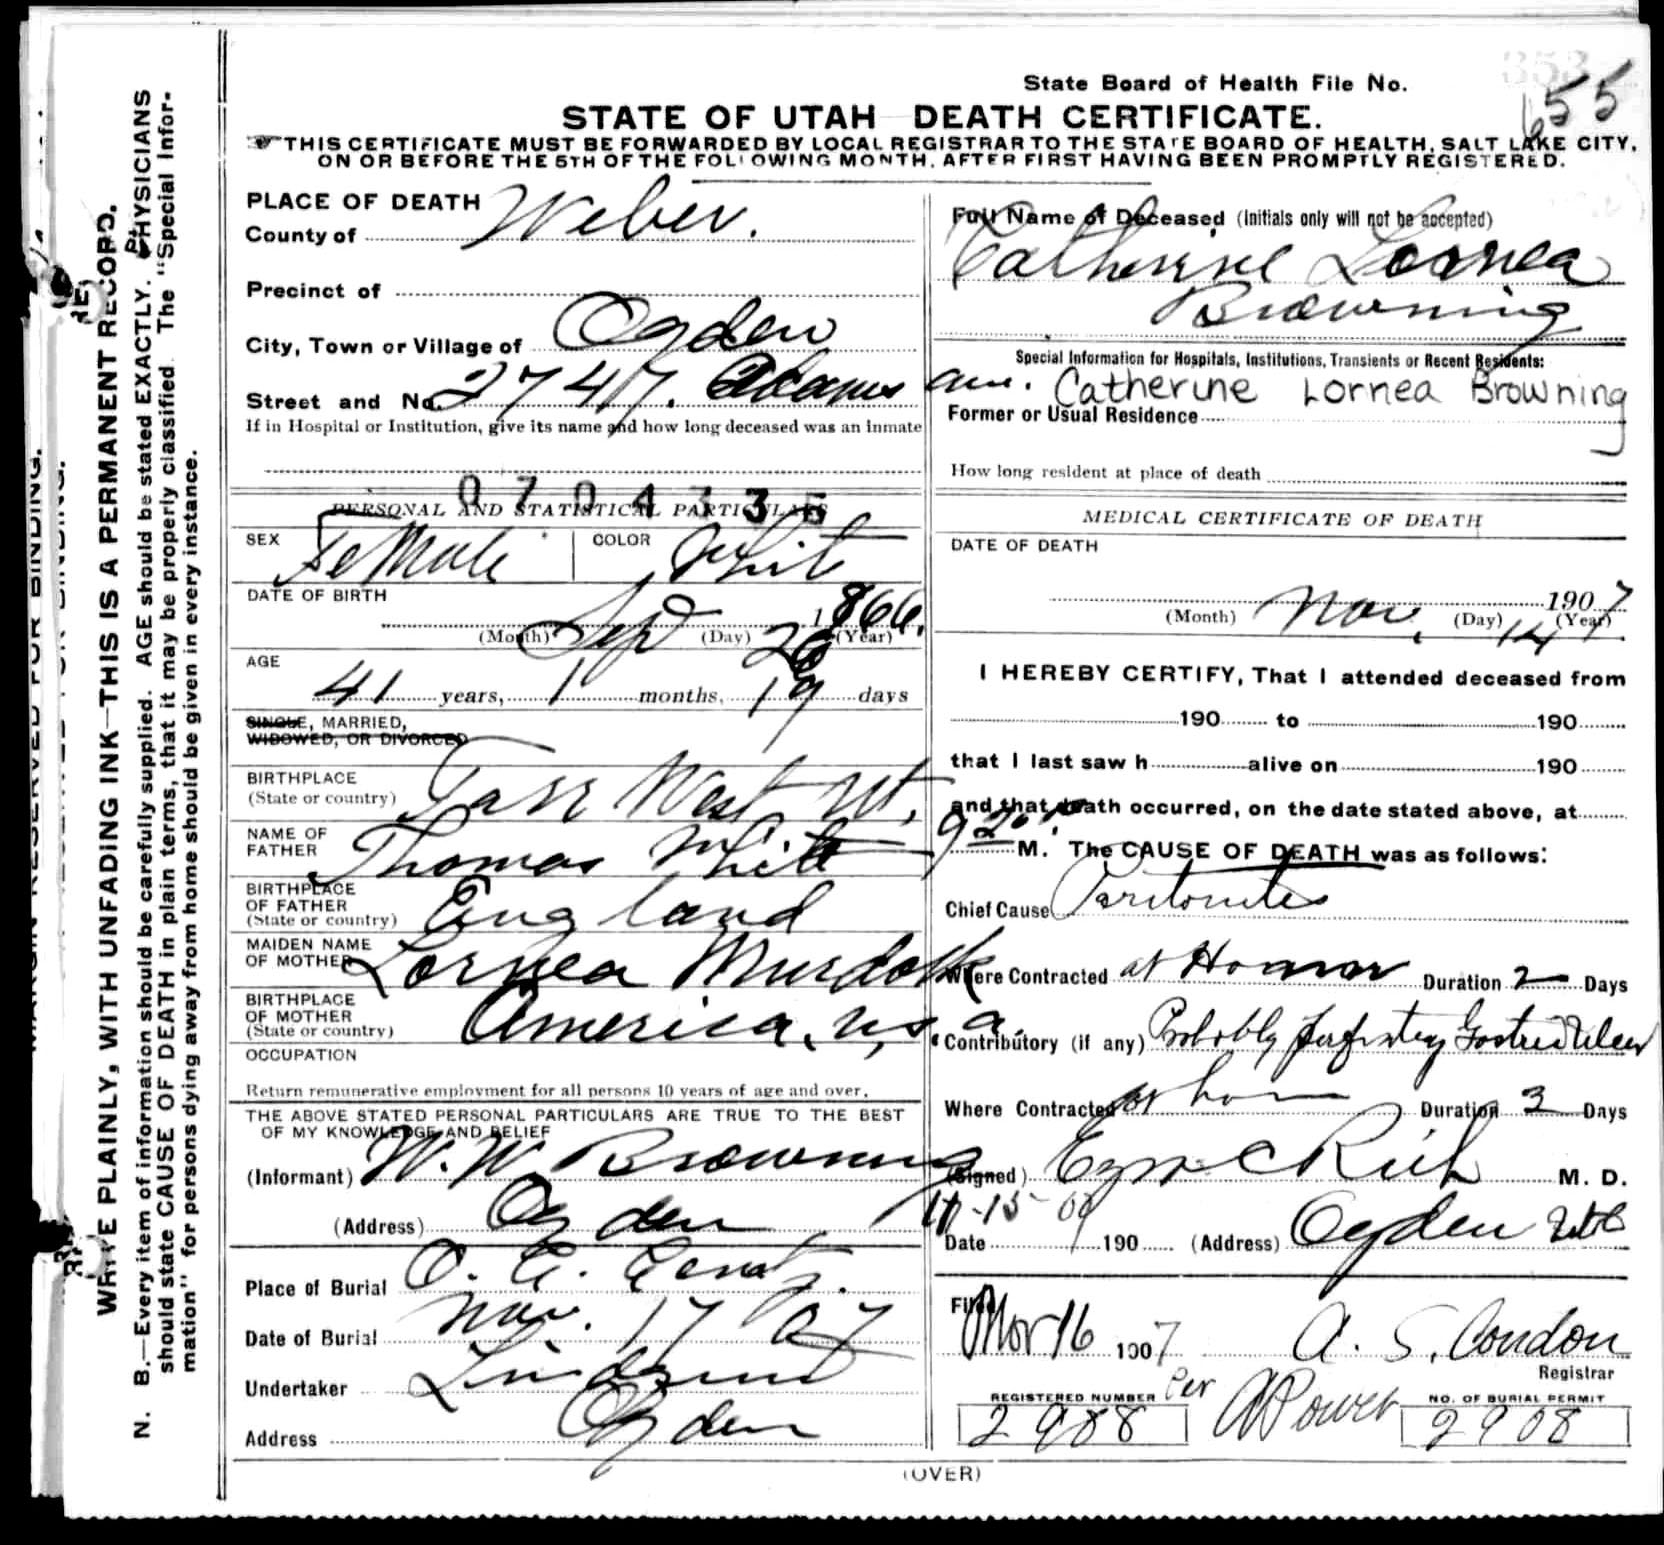 State Board of Health File No.
655
STATE OF UTAH DEATH CERTIFICATE.
THIS CERTIFICATE MUST BE FORWARDED BY LOCAL REGISTRAR TO THE STATE BOARD OF HEALTH, SALT LAKE CITY,
ON OR BEFORE THE 5TH OF THE FOLLOWING MONTH, AFTER FIRST HAVING BEEN PROMPTLY REGISTERED.
PLACE OF DEATH
County of Weber.
Precinct of
City, Town or Village of Ogden
Street and No. 2747. Adams ave.
If in Hospital or Institution, give its name and how long deceased was an inmate
0704335
PERSONAL AND STATISTICAL PARTICULARS
SEX Female COLOR White
DATE OF BIRTH
Sep 26 1866.
(Month) (Day) (Year)
AGE
41 years, 1 months, 19 days
SINGLE, MARRIED,
WIDOWED, OR DIVORCED
BIRTHPLACE
(State or country) Farr West Ut.
NAME OF
FATHER Thomas White
BIRTHPLACE
OF FATHER
(State or country) England
MAIDEN NAME
OF MOTHER Lornea Murdock
BIRTHPLACE
OF MOTHER
(State or country) America, U.S.a.
OCCUPATION
Return remunerative employment for all persons 10 years of age and over.
THE ABOVE STATED PERSONAL PARTICULARS ARE TRUE TO THE BEST
OF MY KNOWLEDGE AND BELIEF
(Informant) W. W. Browning
(Address) Ogden
Place of Burial O. C.
Date of Burial Nov. 17 07
Undertaker Lindquist
Address Ogden
Full Name of Deceased (Initials only will not be accepted)
Catherine Lornea
Browning
Special Information for Hospitals, Institutions, Transients or Recent Residents:
Catherine Lornea Browning
Former or Usual Residence
How long resident at place of death
MEDICAL CERTIFICATE OF DEATH
DATE OF DEATH
Nov. 14 1907
(Month) (Day) (Year)
I HEREBY CERTIFY, That I attended deceased from
190 to 190
that I last saw h alive on 190
and that death occurred, on the date stated above, at
9 20 M. The CAUSE OF DEATH was as follows:
Chief Cause Peritonitis
Where Contracted at Home Duration 2 Days
Contributory (if any) Probably perforating Gastric Ulcer
Where Contracted at home Duration 3 Days
(Signed) Ezra C Rich M. D.
11-15-07
Date 190 (Address) Ogden Utah
Filed Nov 16 1907 A. S. Condon
Registrar
Per
REGISTERED NUMBER
2988
A Power
NO. OF BURIAL PERMIT
2908
(OVER)
MARGIN RESERVED FOR BINDING.
WRITE PLAINLY, WITH UNFADING INK—THIS IS A PERMANENT RECORD.
N. B.—Every item of information should be carefully supplied. AGE should be stated EXACTLY. PHYSICIANS
should state CAUSE OF DEATH in plain terms, that it may be properly classified. The "Special Infor-
mation" for persons dying away from home should be given in every instance.